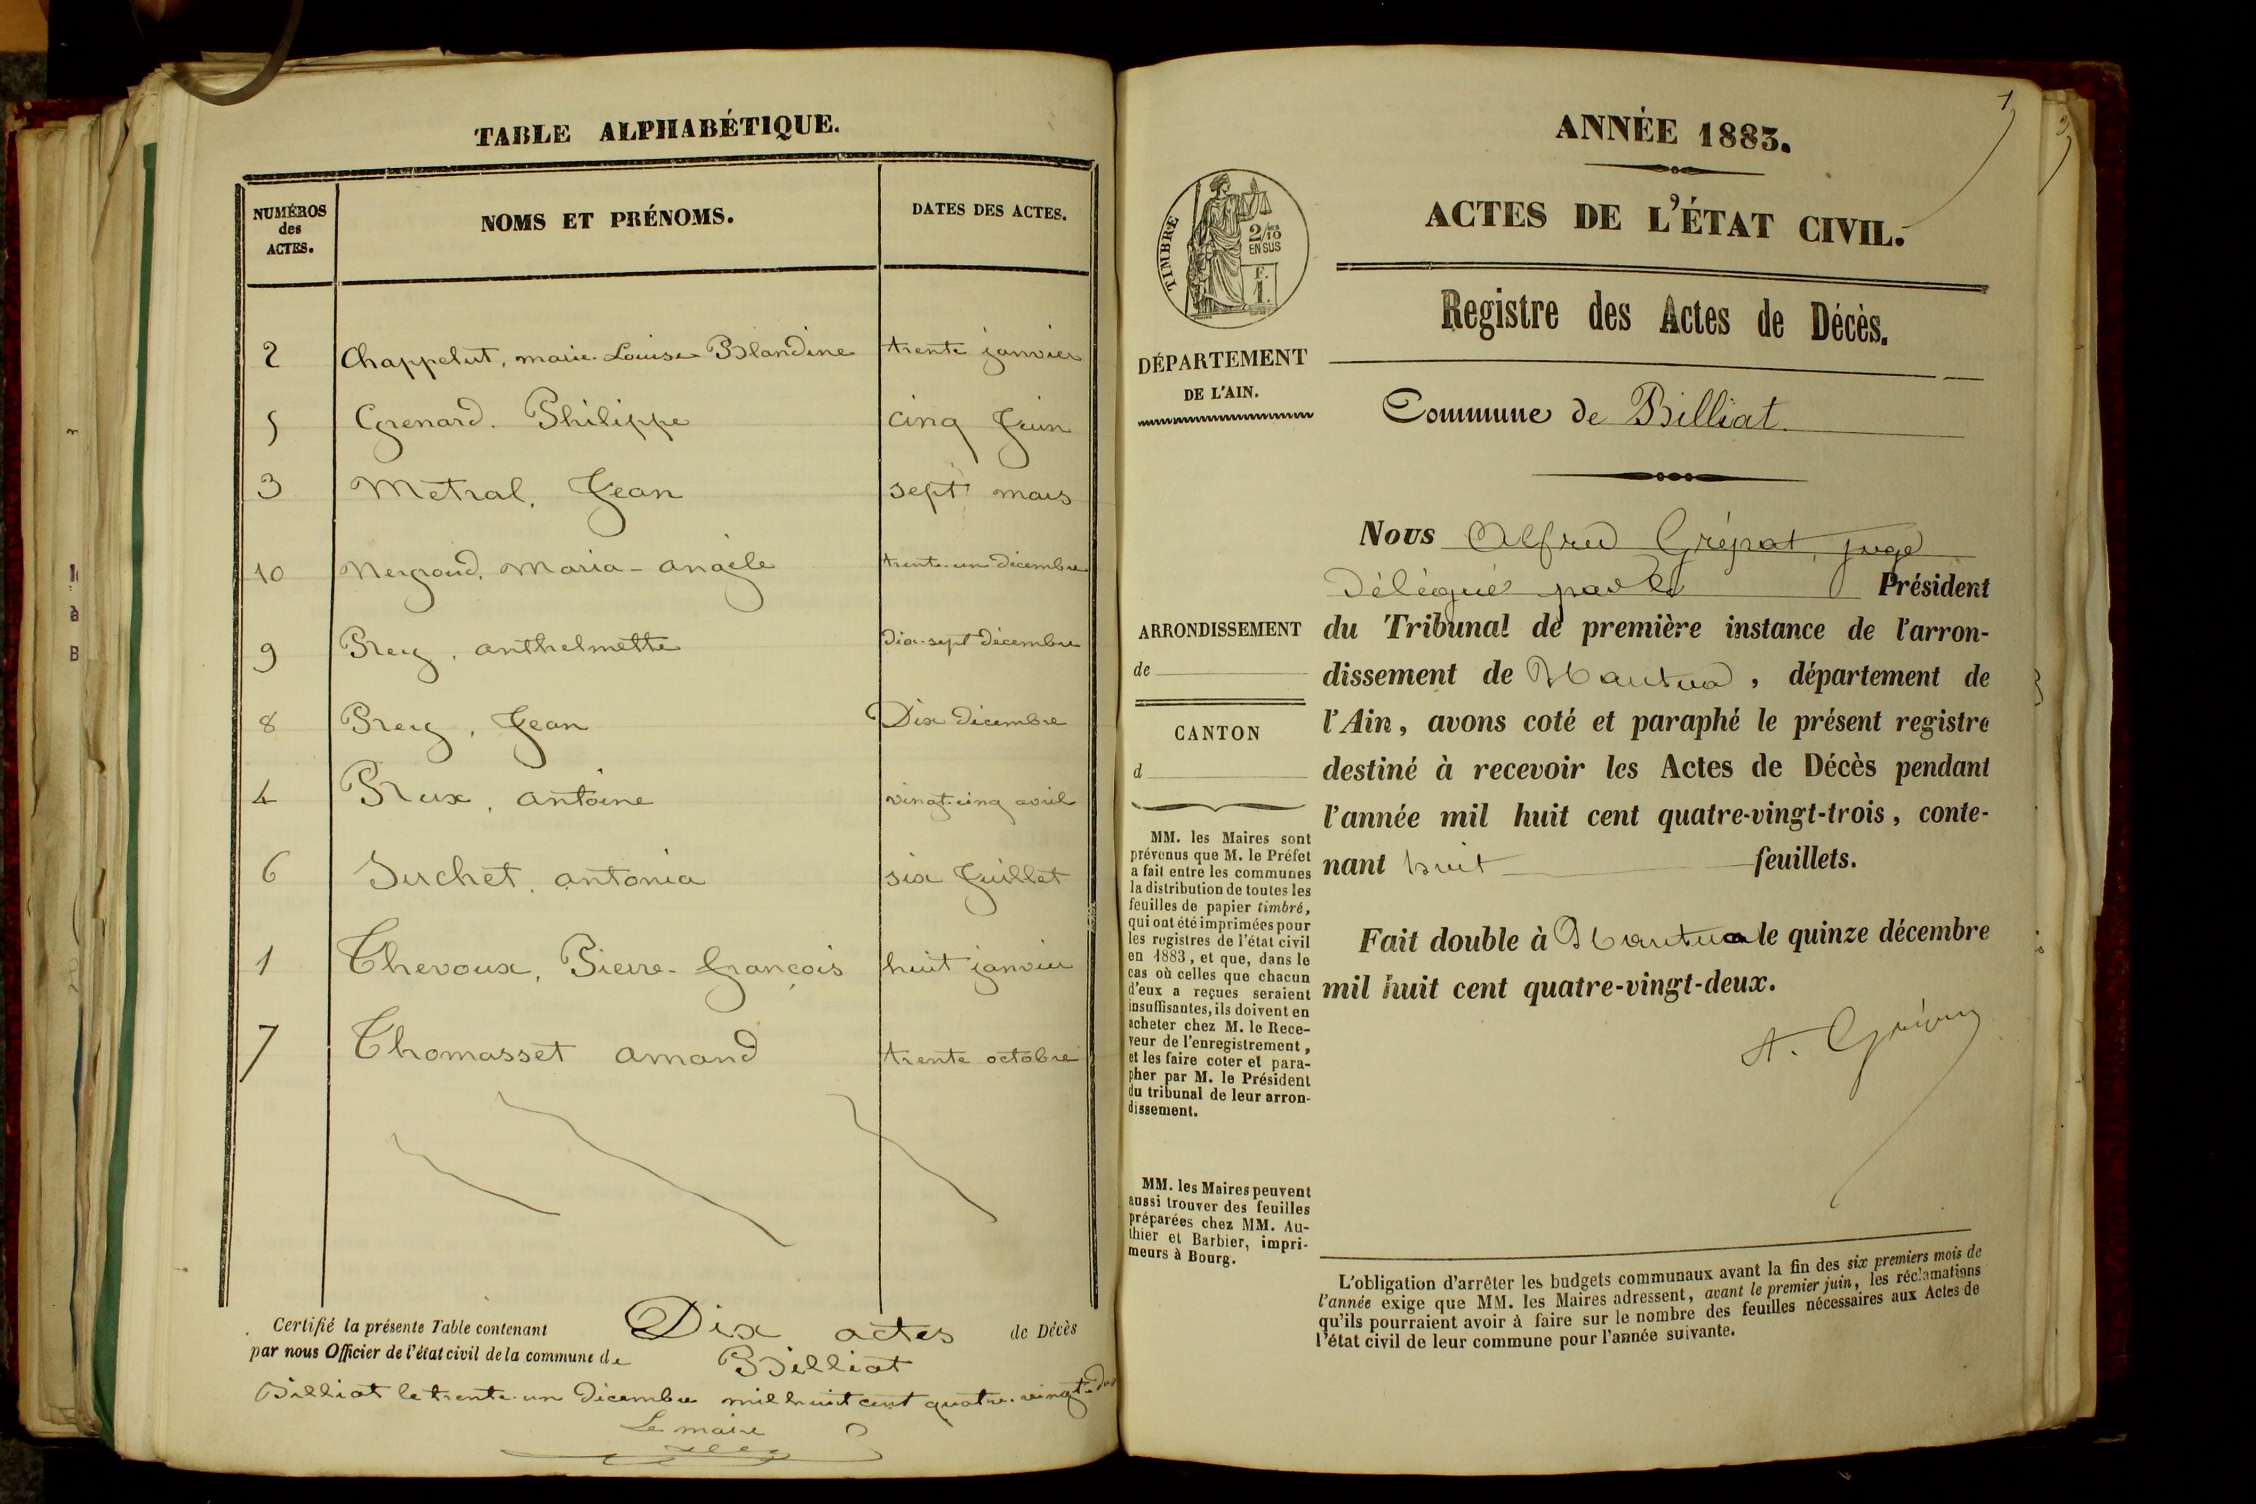 TABLE ALPHABÉTIQUE.
NUMÉROS des ACTES. NOMS ET PRÉNOMS. DATES DES ACTES.
2 Chappelut, marie-Louise Blandine trente janvier
5 Grenard. Philippe cinq Juin
3 Métral. Jean sept mars
10 Nergoud, Maria-angèle trente-un décembre
9 Rey, anthelmette dix-sept décembre
8 Rey, Jean Dix décembre
4 Rux, antoine vingt-cinq avril
6 Suchet, antonia six Juillet
1 Thevoux, Pierre-François huit janvier
7 Thomasset amand trente octobre
Certifié la présente Table contenant Dix actes de Décès
par nous Officier de l'état civil de la commune de Billiat
Billiat le trente-un décembre mil huit cent quatre-vingt-deux
Le maire
1
ANNÉE 1883.
ACTES DE L'ÉTAT CIVIL.
TIMBRE
2/10 EN SUS
F. 1.
Registre des Actes de Décès.
DÉPARTEMENT
DE L'AIN.
Commune de Billiat.
Nous Alfred Grépat, juge
délégué par le Président
du Tribunal de première instance de l'arron-
dissement de Nantua, département de
l'Ain, avons coté et paraphé le présent registre
destiné à recevoir les Actes de Décès pendant
l'année mil huit cent quatre-vingt-trois, conte-
nant huit feuillets.
Fait double à Nantua le quinze décembre
mil huit cent quatre-vingt-deux.
ARRONDISSEMENT
de
CANTON
d
MM. les Maires sont
prévenus que M. le Préfet
a fait entre les communes
la distribution de toutes les
feuilles de papier timbré,
qui ont été imprimées pour
les registres de l'état civil
en 1883, et que, dans le
cas où celles que chacun
d'eux a reçues seraient
insuffisantes, ils doivent en
acheter chez M. le Rece-
veur de l'enregistrement,
et les faire coter et para-
pher par M. le Président
du tribunal de leur arron-
dissement.
MM. les Maires peuvent
aussi trouver des feuilles
préparées chez MM. Au-
thier et Barbier, impri-
meurs à Bourg.
L'obligation d'arrêter les budgets communaux avant la fin des six premiers mois de
l'année exige que MM. les Maires adressent, avant le premier juin, les réclamations
qu'ils pourraient avoir à faire sur le nombre des feuilles nécessaires aux Actes de
l'état civil de leur commune pour l'année suivante.